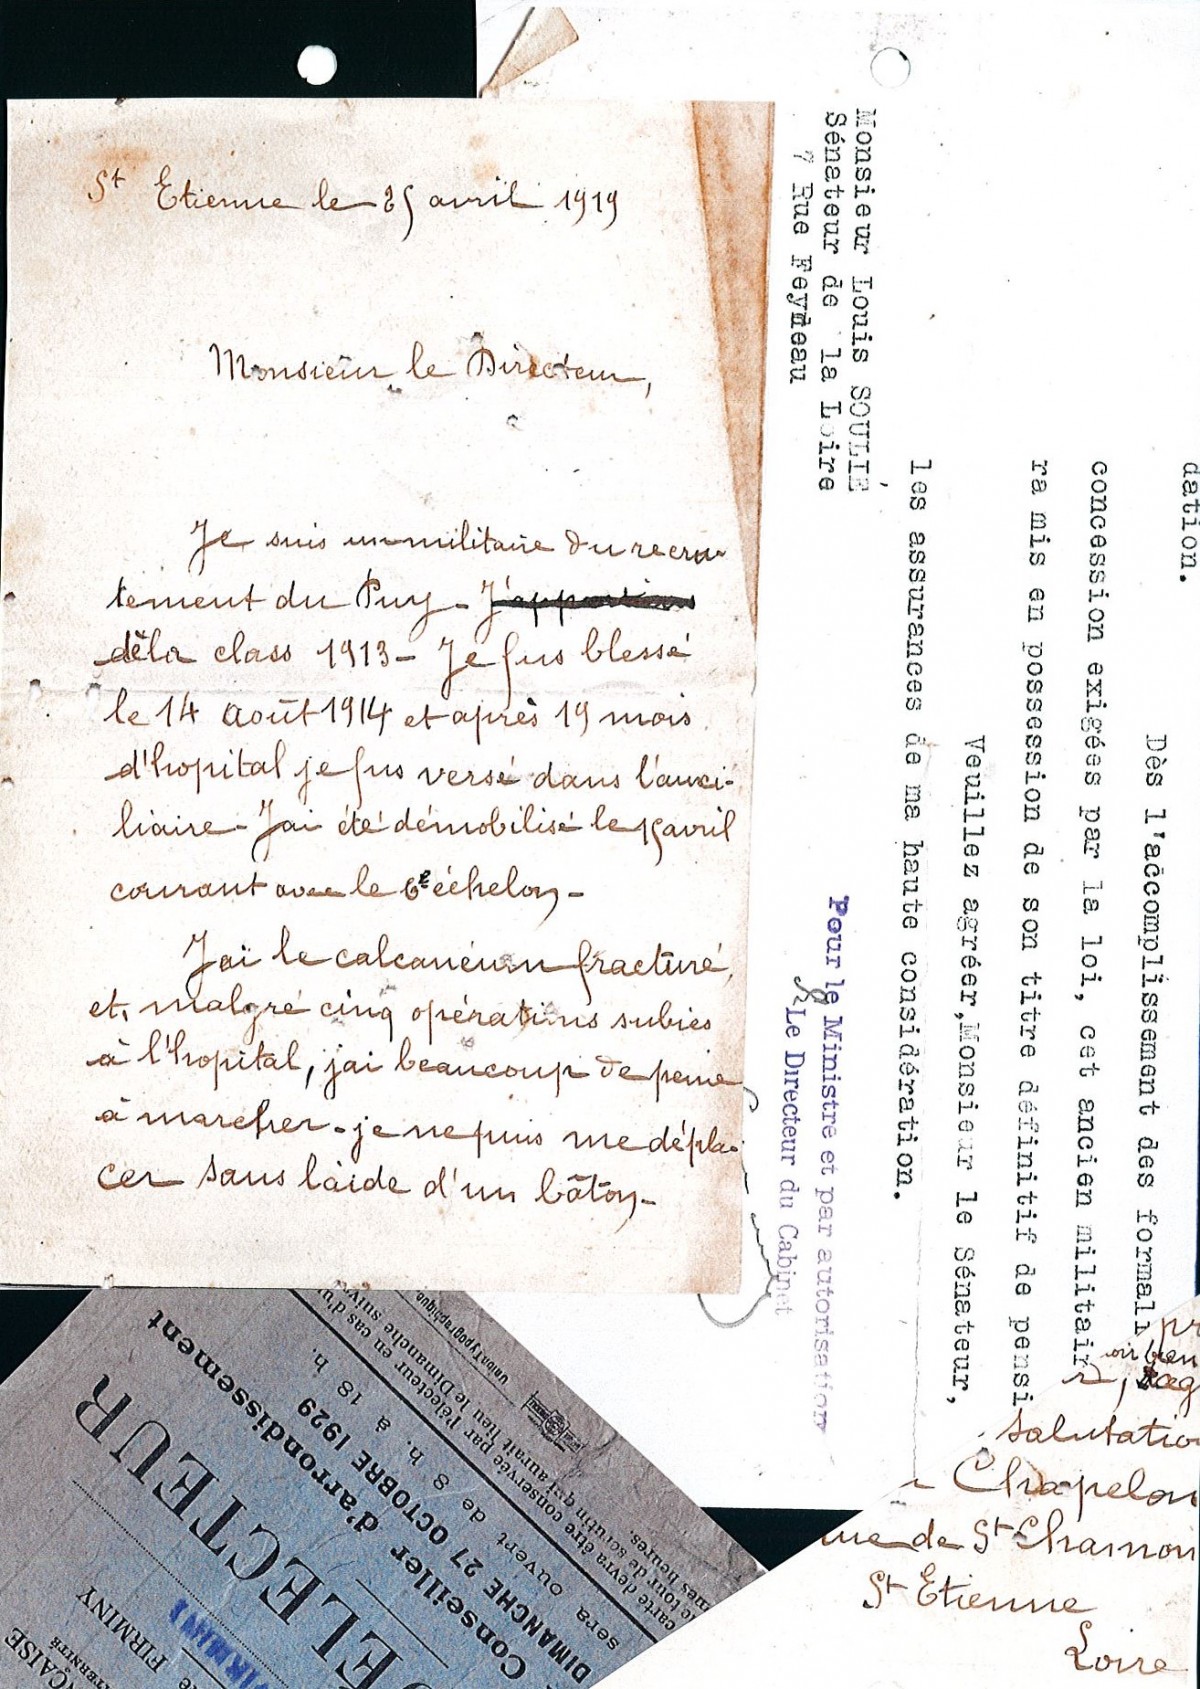 St Etienne le 25 avril 1919
Monsieur le Directeur,
Je suis un militaire du recru-
tement du Puy - J'appartiens
de la class 1913 - Je fus blessé
le 14 Août 1914 et après 19 mois
d'hopital je fus versé dans l'auxi-
liaire - J'ai été démobilisé le 15 avril
courant avec le 6e échelon -
J'ai le calcanéum fracturé,
et, malgré cinq opérations subies
à l'hopital, j'ai beaucoup de peine
à marcher - je ne puis me dépla-
cer sans l'aide d'un bâton -
dation.
Dès l'accomplissement des formali
concession exigées par la loi, cet ancien militair
ra mis en possession de son titre définitif de pensi
Veuillez agréer, Monsieur le Sénateur,
les assurances de ma haute considération.
Pour le Ministre et par autorisation
Le Directeur du Cabinet
Monsieur Louis SOULIE
Sénateur de la Loire
7 Rue Feydeau
salutatio
Chapelon
rue de St Chamon
St Etienne
Loire
NÇAISE
TERNITÉ
DE FIRMINY
FIRMINY
ÉLECTEUR
Conseiller d'arrondissement
DIMANCHE 27 OCTOBRE 1929
sera ouvert de 8 h. à 18 h.
carte devra être conservée par l'électeur en cas d'u
e tour de scrutin qui aurait lieu le Dimanche suiv
mes heures.
Union Typographique